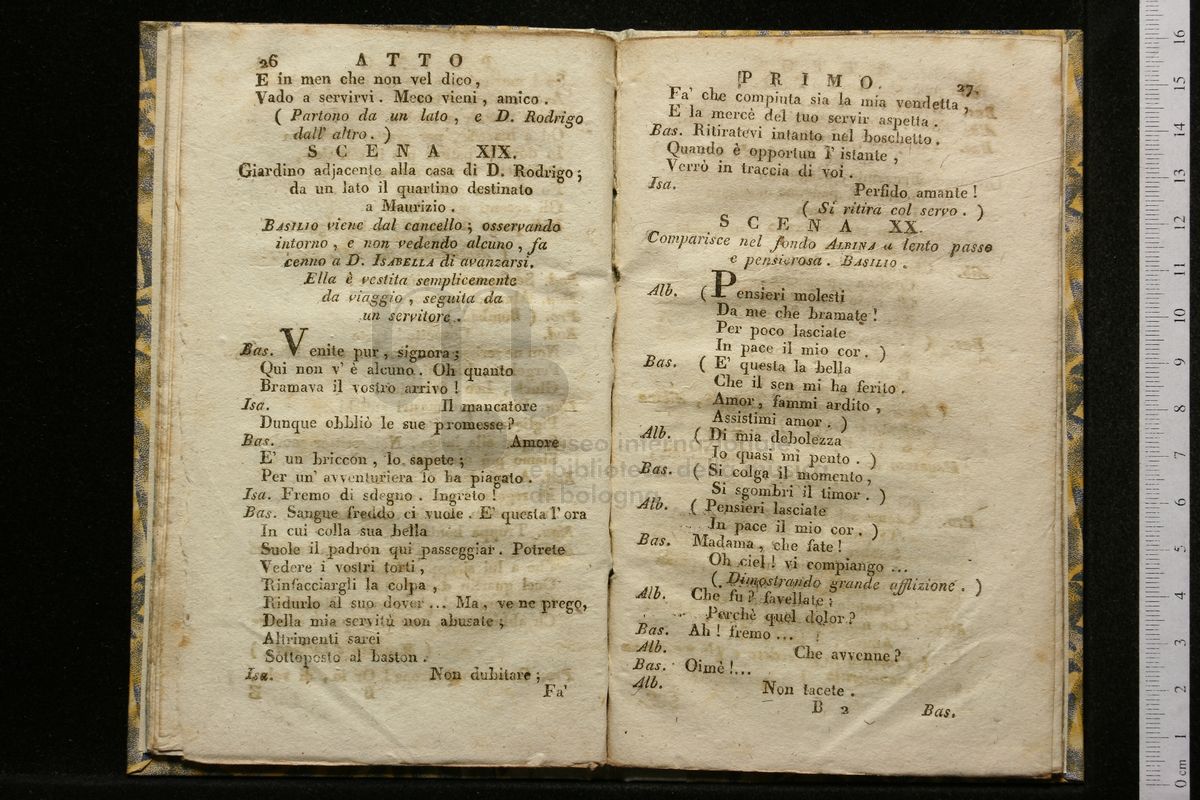 26 ATTO
E in men che non vel dico,
Vado a servirvi. Meco vieni, amico.
( Partono da un lato, e D. Rodrigo
dall' altro. )
SCENA XIX.
Giardino adjacente alla casa di D. Rodrigo;
da un lato il quartino destinato
a Maurizio.
BASILIO viene dal cancello; osservando
intorno, e non vedendo alcuno, fa
cenno a D. ISABELLA di avanzarsi.
Ella è vestita semplicemente
da viaggio, seguita da
un servitore.
Bas. Venite pur, signora;
Qui non v' è alcuno. Oh quanto
Bramava il vostro arrivo!
Isa. Il mancatore
Dunque obbliò le sue promesse?
Bas. Amore
E' un briccon, lo sapete;
Per un' avventuriera lo ha piagato.
Isa. Fremo di sdegno. Ingrato!
Bas. Sangue freddo ci vuole. E' questa l' ora
In cui colla sua bella
Suole il padron qui passeggiar. Potrete
Vedere i vostri torti,
Rinfacciargli la colpa,
Ridurlo al suo dover... Ma, ve ne prego,
Della mia servitù non abusate;
Altrimenti sarei
Sottoposto al baston.
Isa. Non dubitare;
Fa'
PRIMO. 27.
Fa' che compiuta sia la mia vendetta,
E la mercè del tuo servir aspetta.
Bas. Ritiratevi intanto nel boschetto.
Quando è opportun l' istante,
Verrò in traccia di voi.
Isa. Perfido amante!
( Si ritira col servo. )
SCENA XX.
Comparisce nel fondo ALBINA a lento passo
e pensierosa. BASILIO.
Alb. ( Pensieri molesti
Da me che bramate!
Per poco lasciate
In pace il mio cor. )
Bas. ( E' questa la bella
Che il sen mi ha ferito.
Amor, fammi ardito,
Assistimi amor. )
Alb. ( Di mia debolezza
Io quasi mi pento. )
Bas. ( Si colga il momento,
Si sgombri il timor. )
Alb. ( Pensieri lasciate
In pace il mio cor. )
Bas. Madama, che fate!
Oh ciel! vi compiango ...
( Dimostrando grande afflizione. )
Alb. Che fu? favellate;
Perchè quel dolor?
Bas. Ah! fremo ...
Alb. Che avvenne?
Bas. Oimè!...
Alb. Non tacete.
B 2 Bas.
museo internazionale
e biblioteca della musica
di bologna
16
15
14
13
12
11
10
9
8
7
6
5
4
3
2
1
0 cm